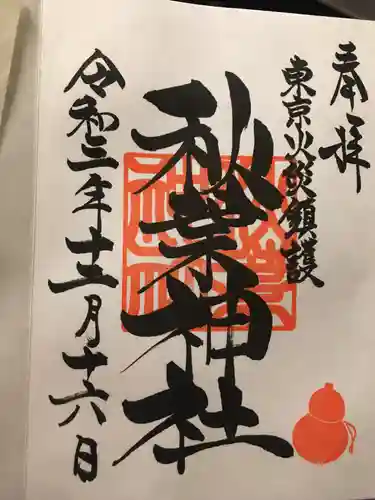 奉拝
東京火災鎮護
秋葉神社
令和三年十二月十六日